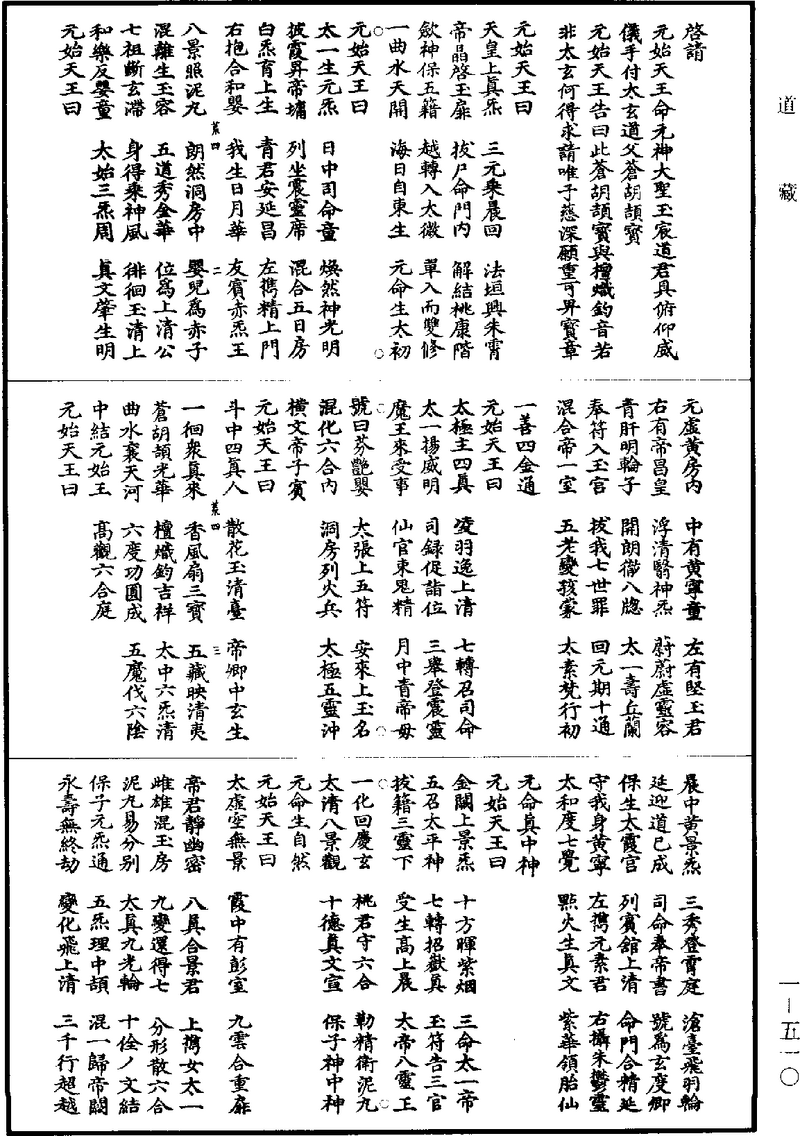 道藏
啓請
元始天王命元神大聖玉宸道君具俯仰威
儀手付太玄道父蒼胡頡寶
元始天王告曰此蒼胡頡寶與檀熾鈞音若
非太玄何得求請唯子慈深願重可昇寶章
元始天王曰
天皇上真炁 三元乘晨回 法垣興朱霄
帝晶啓玉扉 拔尸命門內 解結桃康階
歛神保五籍 越轉入太微 單入而雙修
一曲水天開 海日自東生 元命生太初
元始天王曰
太一生元炁 日中司命童 煥然神光明
披霞昇帝墉 列坐震靈席 混合五日房
白炁育上生 青君安延昌 左攜精上門
右抱合和嬰 我生日月華 友賓赤炁王
菜四 二
八景照泥九 朗然洞房中 嬰兒為赤子
混離生玉容 五道秀金華 位為上清公
七祖斷玄滯 身得乘神風 徘徊玉清上
和樂反嬰童 太始三炁周 真文肇生明
元始天王曰
元虛黃房內 中有黃寧童 左有堅玉君
右有帝昌皇 浮清翳神炁 蔚蔚虛靈容
青肝明輪子 開朗徹八牕 太一壽丘蘭
奉符入玉宮 拔我七世罪 回元期十通
混合帝一室 五老變孩蒙 太素梵行初
一善四金通
元始天王曰
太極主四真 凌羽逸上清 七轉召司命
太一揚威明 司録促詣位 三舉登震靈
魔王來受事 仙官束鬼精 月中青帝母
號曰芬艷嬰 太張上五符 安來上玉名
混化六合內 洞房列火兵 太極五靈沖
橫文帝子賓
元始天王曰
斗中四真人 散花玉清臺 帝卿中玄生
菜四 三
一徊衆真來 香風扇三寶 五藏映清夷
蒼胡頡光華 檀熾鈞吉祥 太中六炁清
曲水襄天河 六度功圓成 五魔伐六陰
中結元始王 高觀六合庭
元始天王曰
晨中黃景炁 三秀登霄庭 滄臺飛羽輪
延迎道已成 司命奉帝書 號為玄度卿
保生太霞官 列賓館上清 命門合精延
守我身黃寧 左攜元素君 右攝朱鬱靈
太和度七覺 點火生真文 紫華領胎仙
元命真中神
元始天王曰
金闕上景炁 十方暉紫烟 三命太一帝
五召太平神 七轉招嶽真 玉符告三官
拔籍三靈下 受生高上晨 太帝八靈王
一化回慶玄 桃君守六合 勒精衛泥九
太清八景觀 十德真文宣 保子神中神
元命生自然
元始天王曰
太虛空無景 霞中有彭室 九雲合重扉
帝君靜幽密 八真合景君 上攜女太一
雌雄混玉房 九變還得七 分形散六合
泥九易分別 太真九光輪 十侌丿文結
保子元炁通 五炁理中頡 混一歸帝闕
永壽無終劫 變化飛上清 三千行超越
一－五一〇